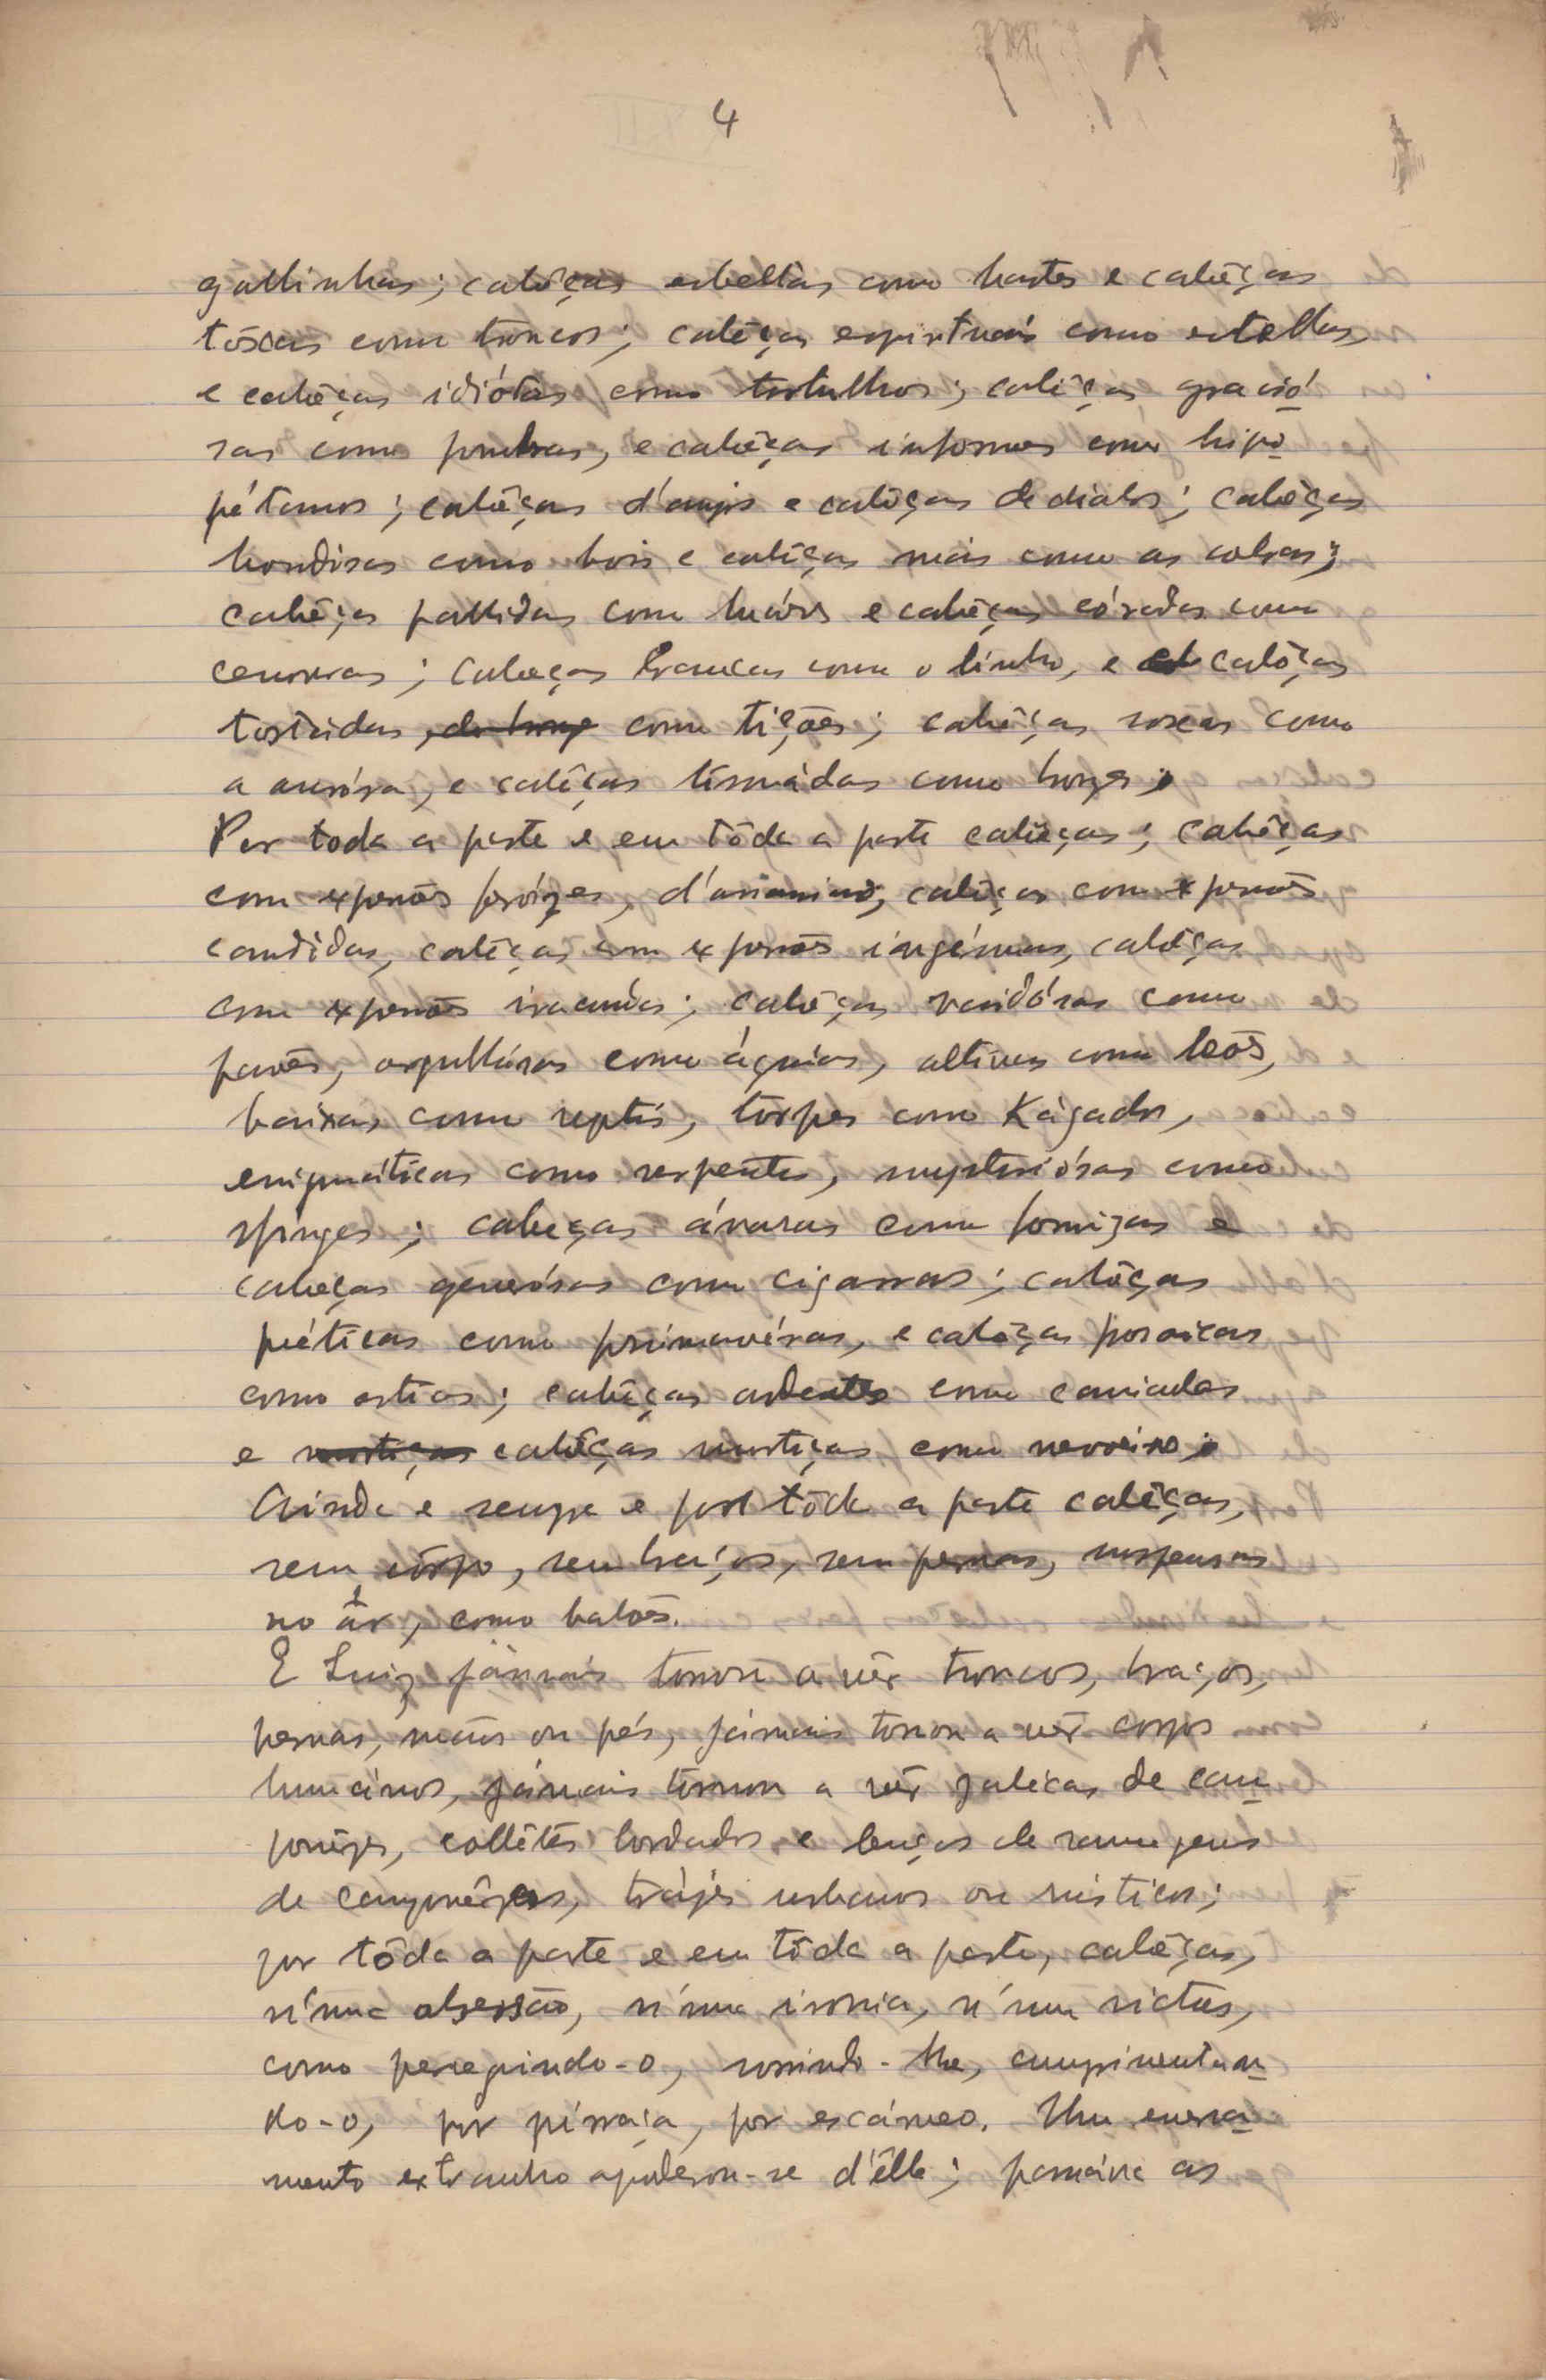 4
gallinhas; cabêças esbeltas como hastes e cabêças
tôscas como troncos; cabêças espirituais como estellas,
e cabêças idiótas como tortulhos; cabêças gració
sas como pombas, e cabêças informes como hipo
pótamos; cabêças d'anjos e cabêças de diabos; cabêças
bondosas como bois e cabêças más como as cobras;
cabêças pallidas como luáres e cabêças córadas como
cenouras; cabeças brancas como o linho, e cabêças
tostadas como tições; cabêças roseas como
a auróra, e cabêças tisnádas como
Por toda a parte e em tôda a parte cabêças; cabêças
com expressões ferózes, d'assassino, cabêças com expressões
candidas, cabêças com expressões ingénuas, cabêças
com expressões iracundas; cabêças vaidósas como
pavões, orgulhósas como águias, altivas como leões,
baixas como reptis, torpes como Kágados,
enigmáticas como serpentes, mysteriósas como
sfinges; cabeças ávaras como formigas e
cabeças generósas como cigarras; cabêças
poéticas como primavéras, e cabêças prosaicas
como estios; cabêças ardentes como caniculas
e mortiças cabêças mortiças como nevoeiro
Ainda e sempre e por tôda a parte cabêças,
sem côrpo, sem braços, sem pernas, suspensas
no ár, como balões.
E Luiz jámais tornou a vêr troncos, braços,
pernas, mãos ou pés, jámais tornou a vêr corpos
humânos, jámais tornou a vêr jalécas de cam
ponezes, collêtes bordados e lenços de ramagens
de camponêzas, trájes urbanos ou rústicos;
por tôda a parte e em tôda a parte, cabêças,
n'uma obsessão, n'uma ironia, n'um rictus,
como perseguindo-o, sorrindo-lhe, cumprimentan
do-o, por pirraça, por escárneo. Um enerva
mento extranho apoderou-se d'êlle; passáva as